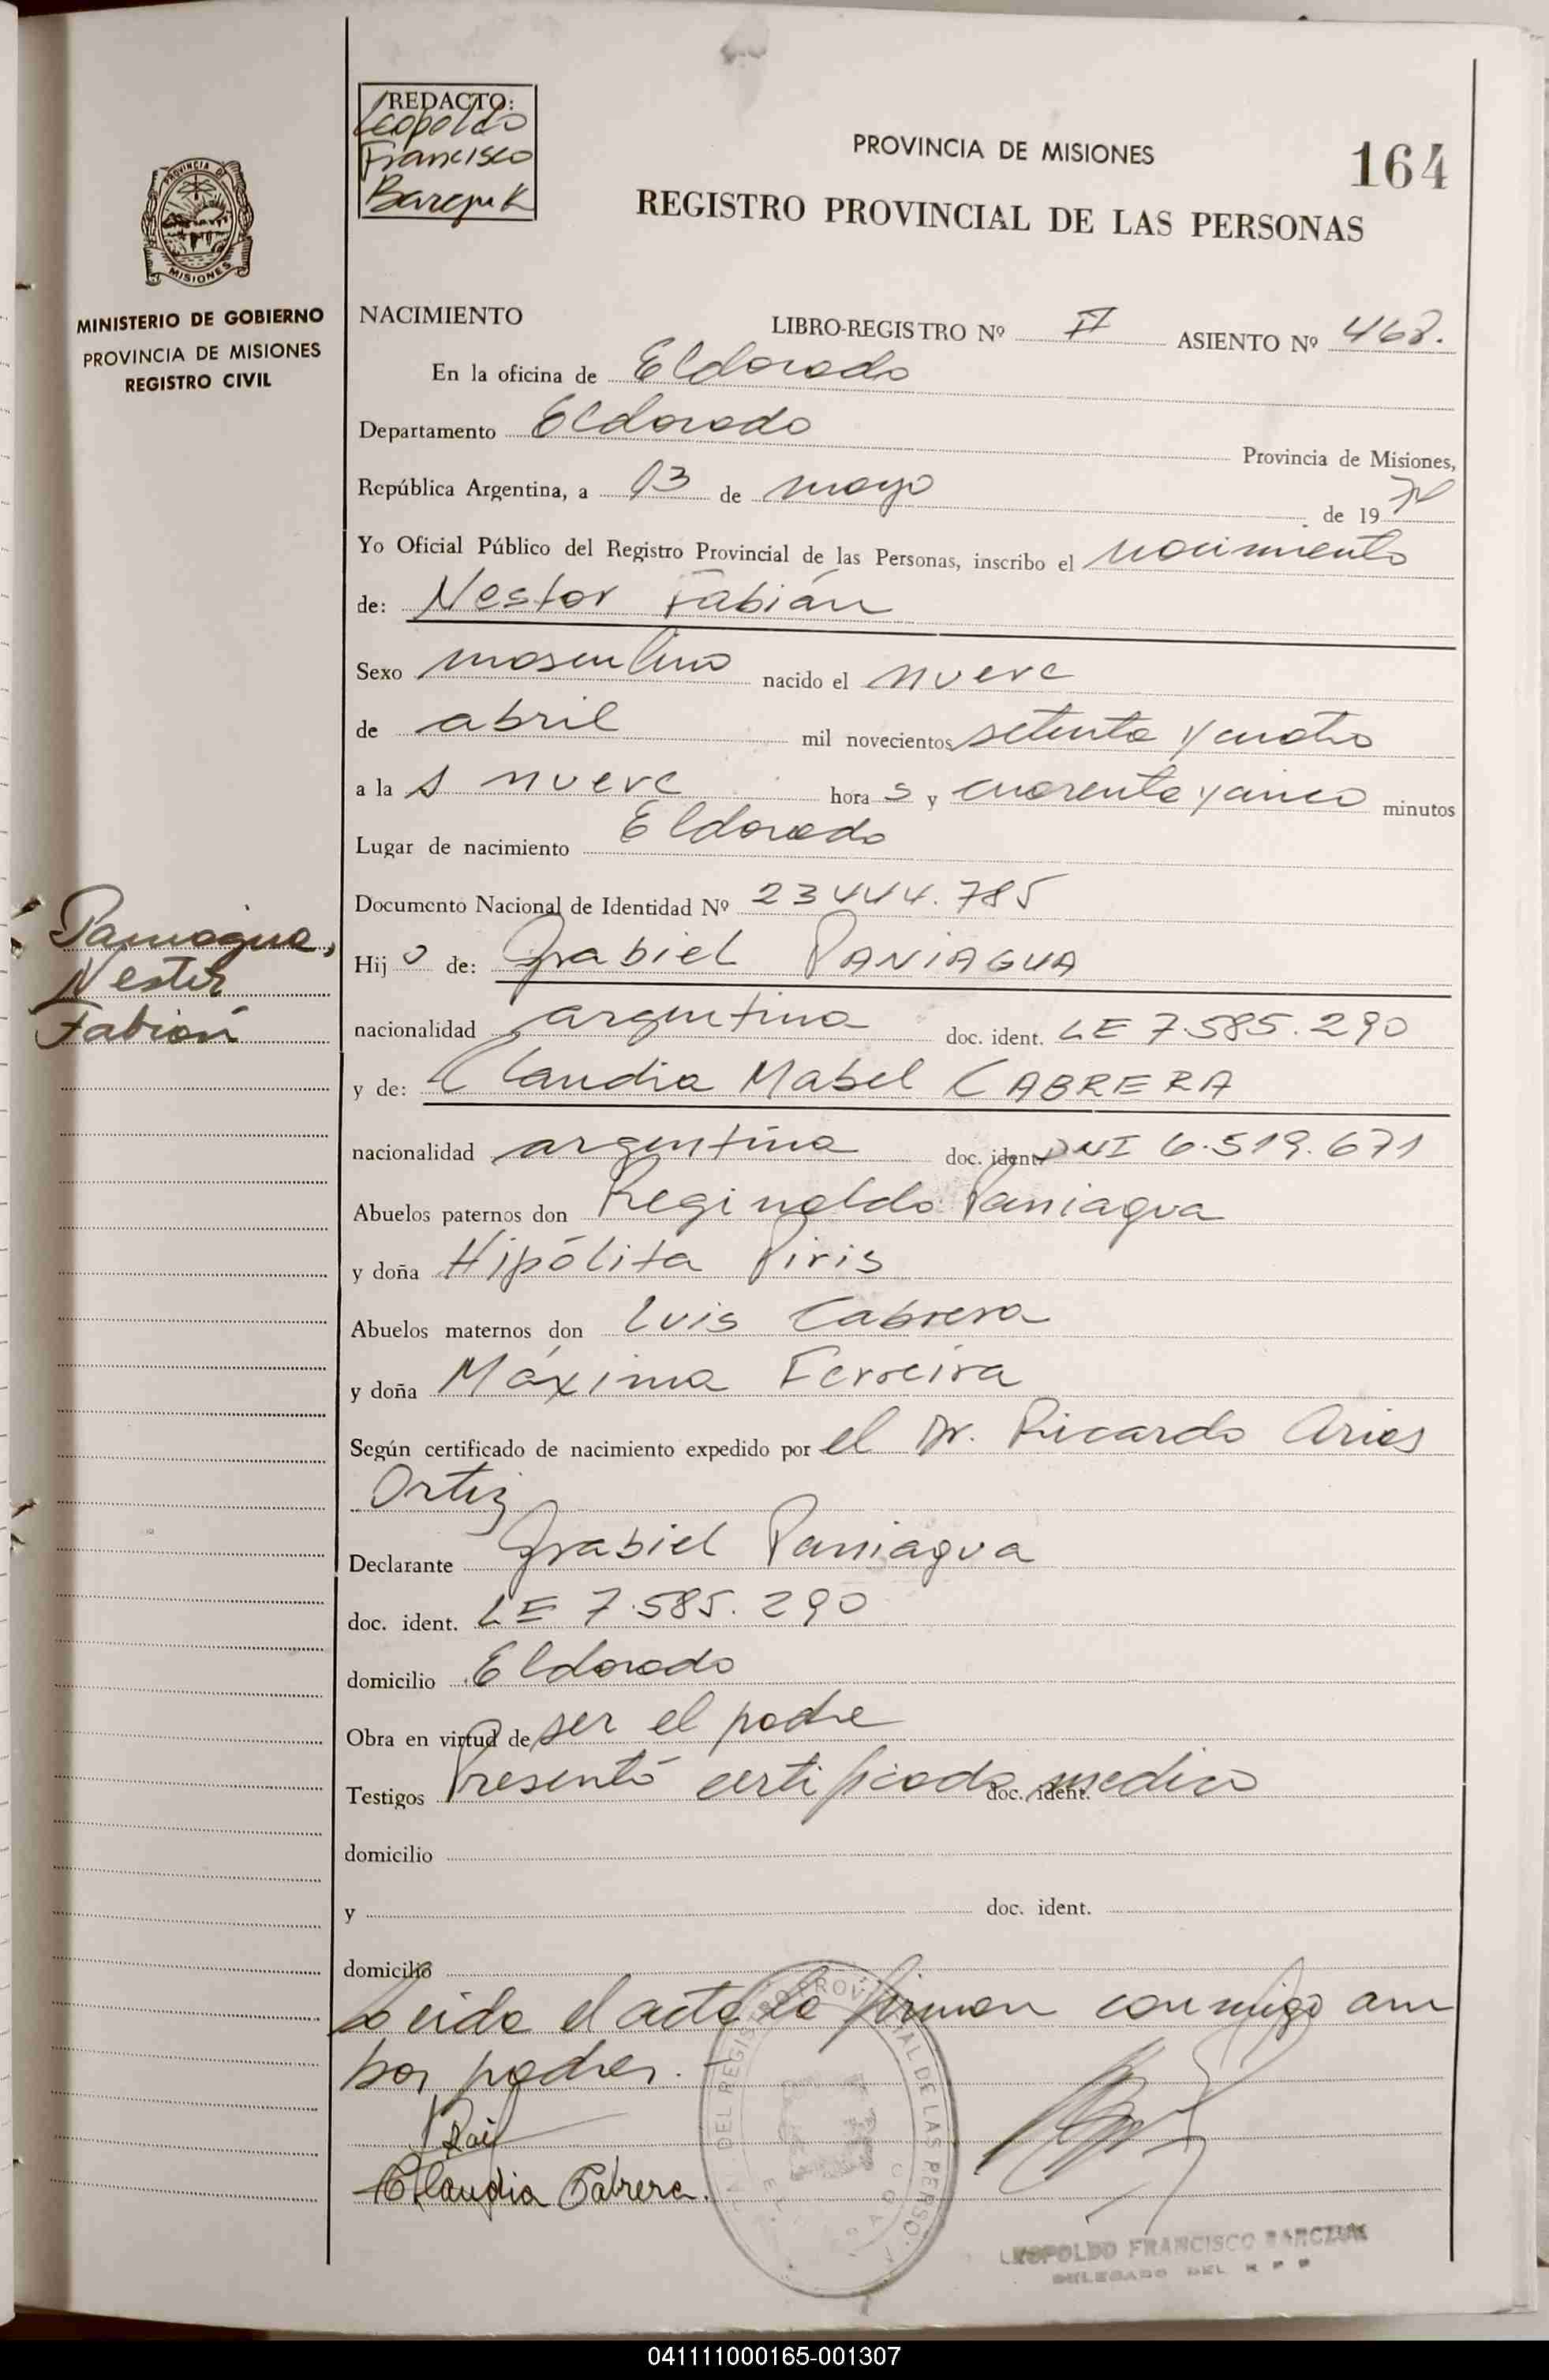 REDACTO:
Leopoldo
Francisco
Barczuk
PROVINCIA DE MISIONES
164
REGISTRO PROVINCIAL DE LAS PERSONAS
PROVINCIA DE
MISIONES
MINISTERIO DE GOBIERNO
PROVINCIA DE MISIONES
REGISTRO CIVIL
NACIMIENTO LIBRO-REGISTRO Nº II ASIENTO Nº 468.
En la oficina de Eldorado
Departamento Eldorado Provincia de Misiones,
República Argentina, a 03 de mayo de 19 74
Yo Oficial Público del Registro Provincial de las Personas, inscribo el nacimiento
de: Nestor Fabián
Sexo masculino nacido el nueve
de abril mil novecientos setenta y cuatro
a la s nueve hora s y cuarenta y cinco minutos
Lugar de nacimiento Eldorado
Documento Nacional de Identidad Nº 23444.785
Paniagua,
Nestor
Fabián
Hij o de: Grabiel PANIAGUA
nacionalidad argentina doc. ident. LE 7.585.290
y de: Claudia Mabel CABRERA
nacionalidad argentina doc. ident. DNI 6.519.671
Abuelos paternos don Reginaldo Paniagua
y doña Hipólita Piris
Abuelos maternos don Luis Cabrera
y doña Máxima Ferreira
Según certificado de nacimiento expedido por el Dr. Ricardo Arias
Ortiz
Declarante Grabiel Paniagua
doc. ident. LE 7.585.290
domicilio Eldorado
Obra en virtud de ser el padre
Testigos Presentó certificado doc. ident. medico
domicilio
y doc. ident.
domicilio
Leida el acta la firman conmigo am
bos padres.
Claudia Cabrera.
DEL REGISTRO PROVINCIAL DE LAS PERSO
LEOPOLDO FRANCISCO BARCZUK
DELEGADO DEL R P P
041111000165-001307